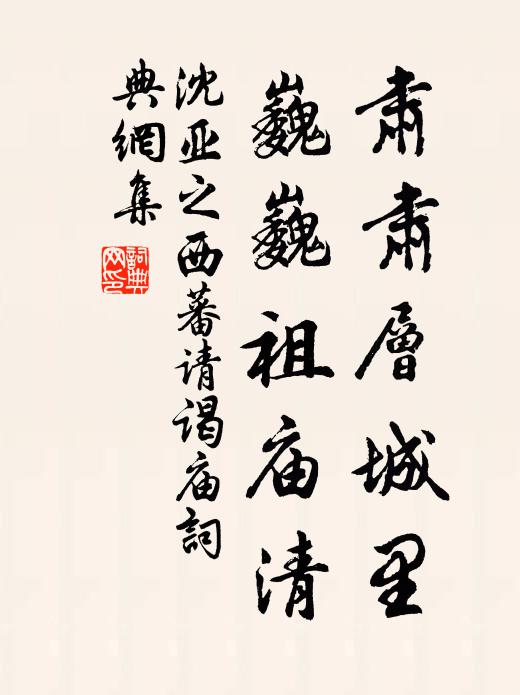 肅肅層城里
巍巍祖庙清
沈亚之西蕃请谒庙詞
典網集
詞典
网印